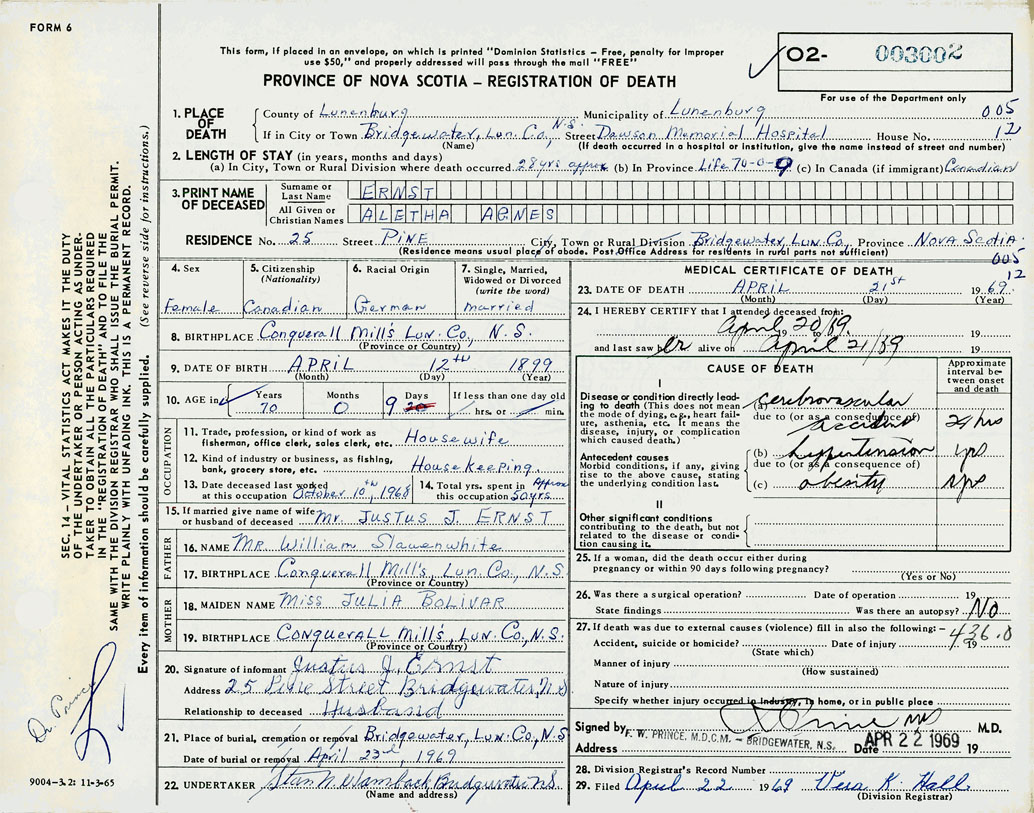 FORM 6
This form, if placed in an envelope, on which is printed "Dominion Statistics – Free, penalty for improper
use $50," and properly addressed will pass through the mail "FREE"
PROVINCE OF NOVA SCOTIA – REGISTRATION OF DEATH
02- 003002
For use of the Department only
005
12
1. PLACE OF DEATH
County of Lunenburg Municipality of Lunenburg
If in City or Town Bridgewater, Lun. Co., N.S. Street Dawson Memorial Hospital House No.
(Name) (If death occurred in a hospital or institution, give the name instead of street and number)
2. LENGTH OF STAY (in years, months and days)
(a) In City, Town or Rural Division where death occurred 28 yrs approx (b) In Province Life 70-0-9 (c) In Canada (if immigrant) Canadian
3. PRINT NAME OF DECEASED
Surname or Last Name ERNST
All Given or Christian Names ALETHA AGNES
RESIDENCE No. 25 Street PINE City, Town or Rural Division Bridgewater, Lun. Co., Province NOVA SCOTIA
(Residence means usual place of abode. Post Office Address for residents in rural parts not sufficient)
005
12
4. Sex
Female
5. Citizenship (Nationality)
Canadian
6. Racial Origin
German
7. Single, Married, Widowed or Divorced (write the word)
Married
8. BIRTHPLACE Conquerall Mill's Lun. Co., N.S.
(Province or Country)
9. DATE OF BIRTH APRIL 12th 1899
(Month) (Day) (Year)
10. AGE in Years Months Days If less than one day old
70 0 9 hrs. or min.
OCCUPATION
11. Trade, profession, or kind of work as fisherman, office clerk, sales clerk, etc. Housewife
12. Kind of industry or business, as fishing, bank, grocery store, etc. House keeping.
13. Date deceased last worked at this occupation October 10th, 1968
14. Total yrs. spent in this occupation Approx 50 yrs.
15. If married give name of wife or husband of deceased Mr. JUSTUS J. ERNST
FATHER
16. NAME MR. William Slauenwhite
17. BIRTHPLACE Conquerall Mill's, Lun. Co., N.S
(Province or Country)
MOTHER
18. MAIDEN NAME Miss JULIA BOLIVAR
19. BIRTHPLACE CONQUERALL Mill's, Lun. Co., N.S.
(Province or Country)
20. Signature of informant Justus J. Ernst
Address 25 Pine Street Bridgewater, N.S
Relationship to deceased Husband
21. Place of burial, cremation or removal Bridgewater, Lun. Co., N.S
Date of burial or removal April 23rd, 1969
22. UNDERTAKER Stan N. Wamback, Bridgewater N.S.
(Name and address)
MEDICAL CERTIFICATE OF DEATH
23. DATE OF DEATH APRIL 21st 1969.
(Month) (Day) (Year)
24. I HEREBY CERTIFY that I attended deceased from:
April 20/69 19 to 19
and last saw her alive on April 21/69 19
CAUSE OF DEATH
Approximate interval between onset and death
I
Disease or condition directly leading to death (This does not mean the mode of dying, e.g., heart failure, asthenia, etc. It means the disease, injury, or complication which caused death.)
(a) cerebrovascular
due to (or as a consequence of)
accident 24 hrs
Antecedent causes
Morbid conditions, if any, giving rise to the above cause, stating the underlying condition last.
(b) hypertension yrs
due to (or as a consequence of)
(c) obesity yrs
II
Other significant conditions
contributing to the death, but not related to the disease or condition causing it.
25. If a woman, did the death occur either during
pregnancy or within 90 days following pregnancy?
(Yes or No)
26. Was there a surgical operation? Date of operation 19
State findings Was there an autopsy? No
27. If death was due to external causes (violence) fill in also the following: – 436.0
Accident, suicide or homicide? Date of injury 19
(State which)
Manner of injury
(How sustained)
Nature of injury
Specify whether injury occurred in Industry, in home, or in public place
Signed by Prince MD M.D.
F. W. PRINCE, M.D.C.M. – BRIDGEWATER, N.S.
Address Date APR 22 1969 19
28. Division Registrar's Record Number
29. Filed April 22 1969 Vera K. Hall
(Division Registrar)
SEC. 14 – VITAL STATISTICS ACT MAKES IT THE DUTY
OF THE UNDERTAKER OR PERSON ACTING AS UNDER-
TAKER TO OBTAIN ALL THE PARTICULARS REQUIRED
IN THE "REGISTRATION OF DEATH" AND TO FILE THE
SAME WITH THE DIVISION REGISTRAR WHO SHALL ISSUE THE BURIAL PERMIT.
WRITE PLAINLY WITH UNFADING INK. THIS IS A PERMANENT RECORD.
Every item of information should be carefully supplied. (See reverse side for instructions.)
Dr. Prince
9004-3.2: 11-3-65